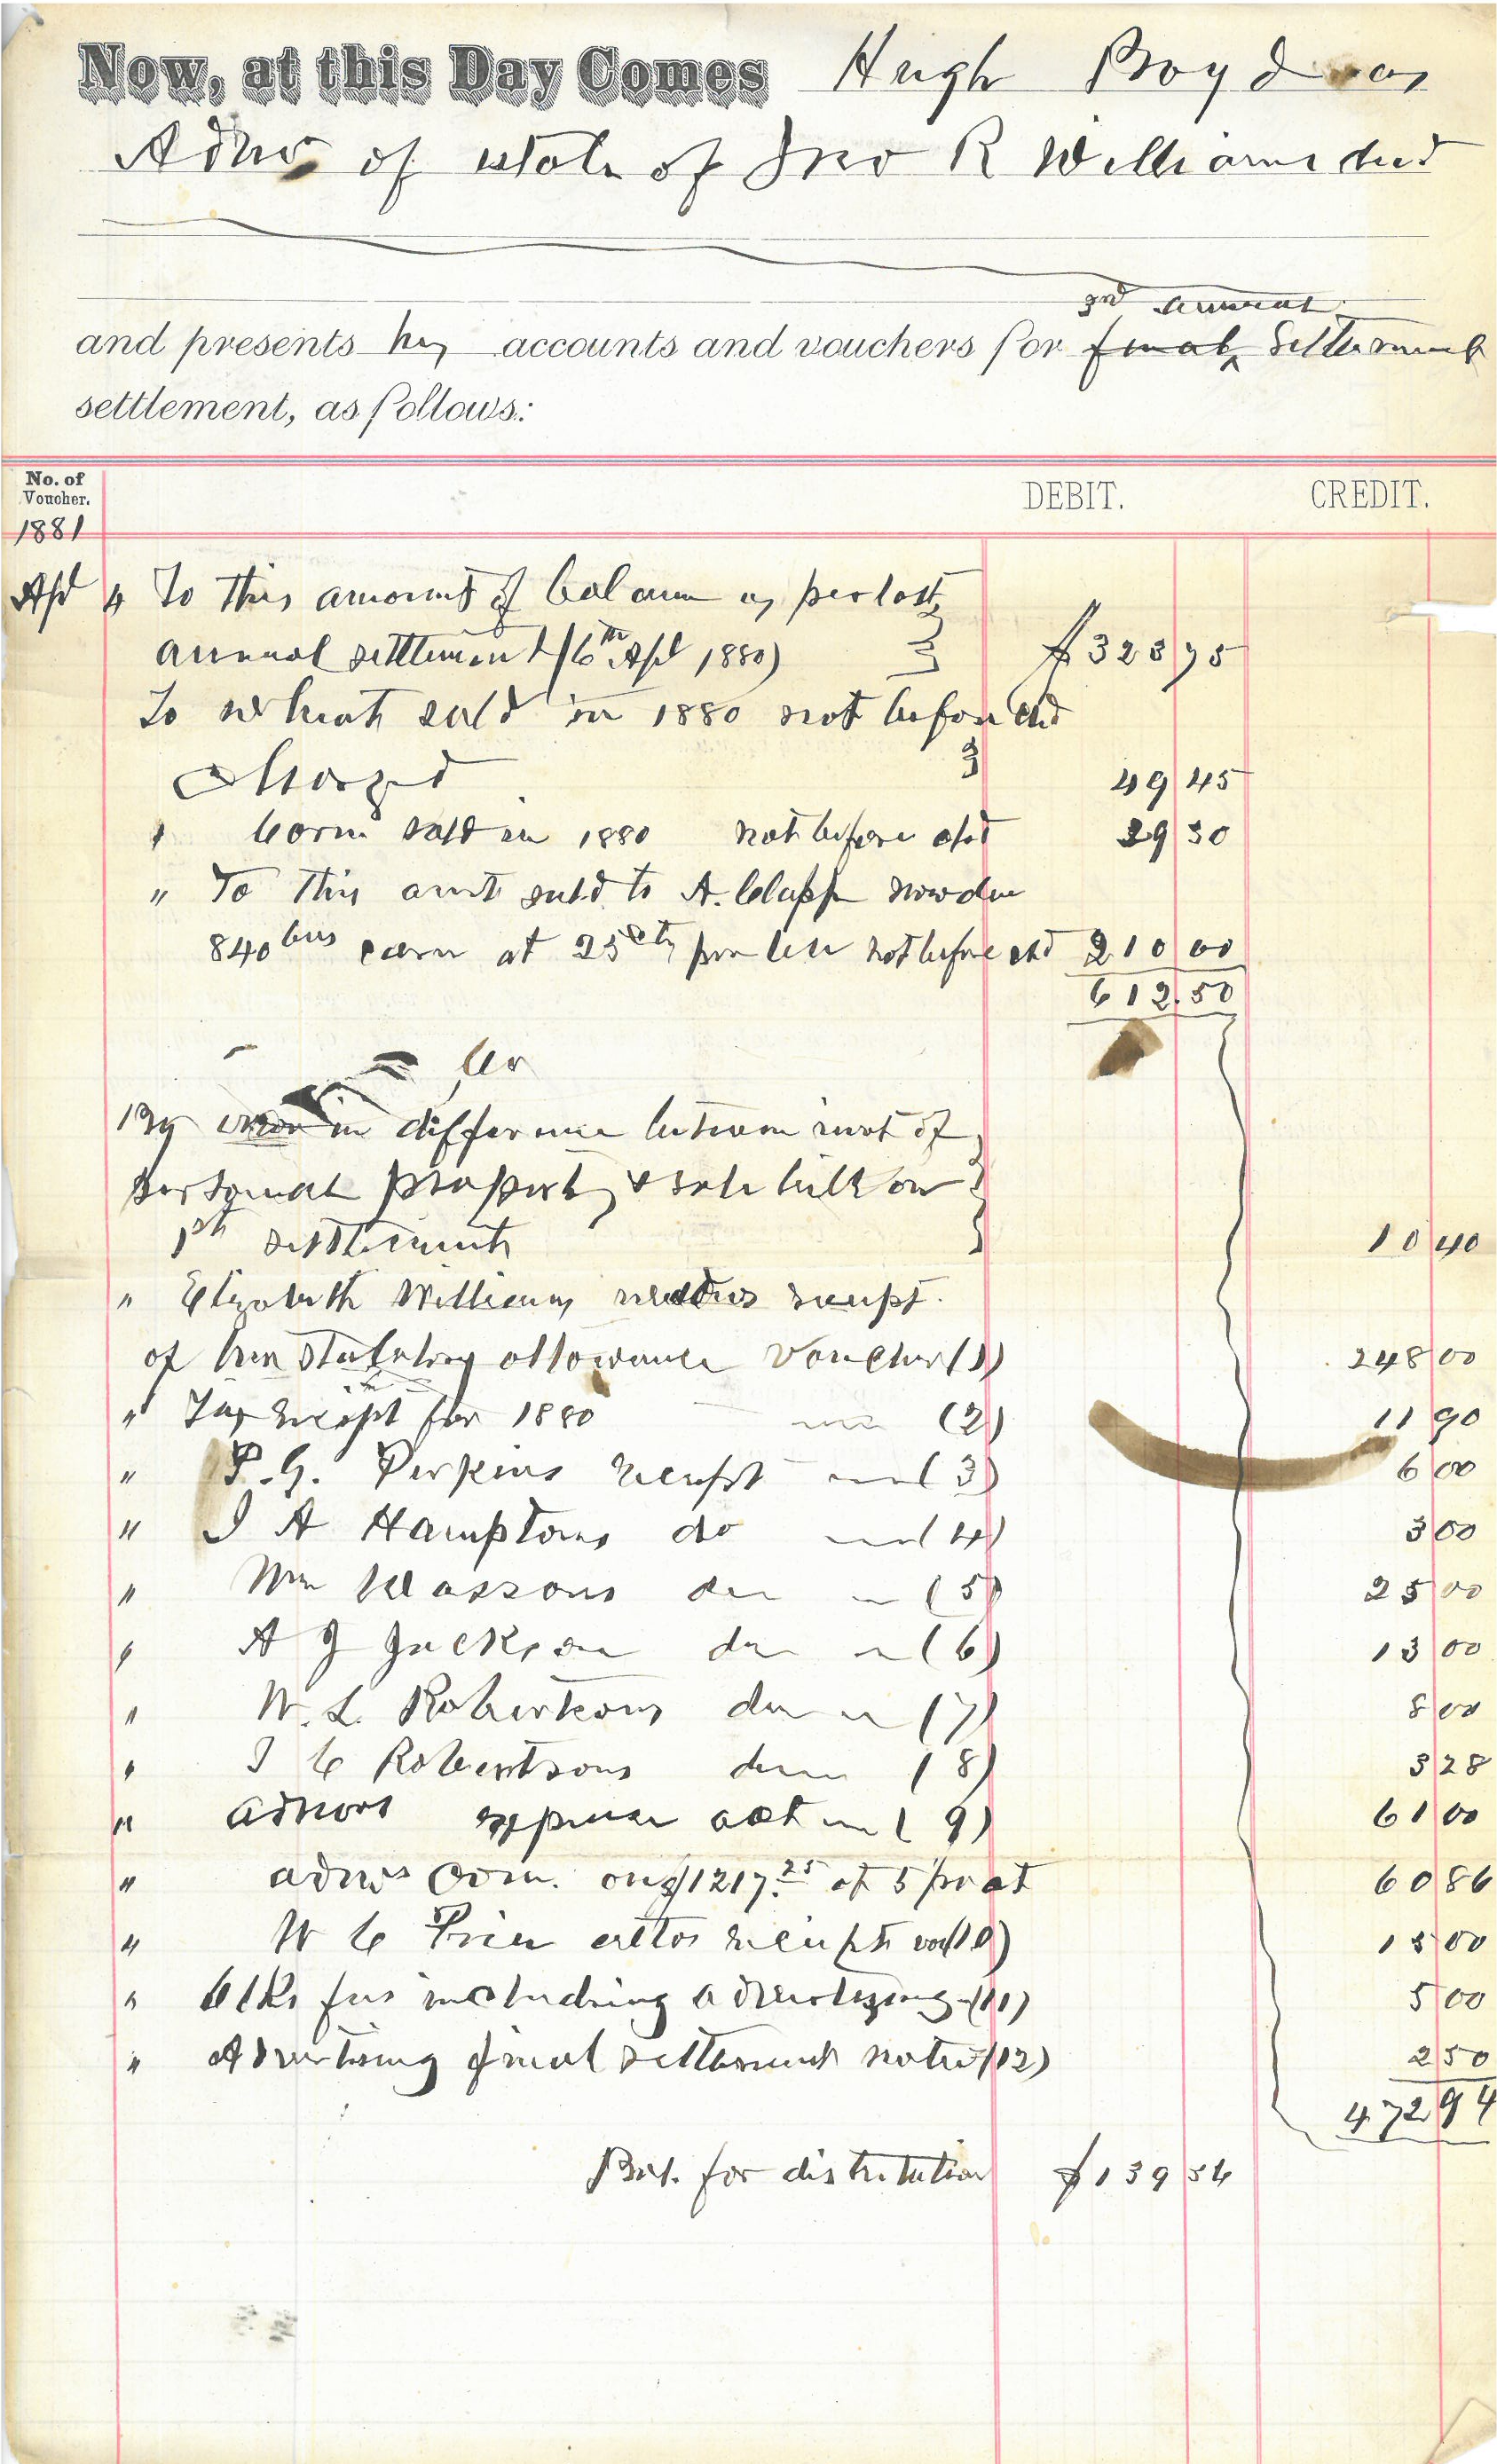 Now, at this Day Comes Hugh Boyd as
Admr of Estate of Jno R Williams decd
3rd annual
and presents his accounts and vouchers for final Settlement
settlement, as follows:
No. of
Voucher.
DEBIT. CREDIT.
1881
Apl 4 To this amount of balance as per last
annual settlement (6th Apl 1880) $323 75
To wheat sold in 1880 not before chd
Charged 49 45
" Corn sold in 1880 not before chd 29 30
" To this amt sold to A. Clapp now due
840 bus corn at 25 cts per bu not before chd 210 00
612.50
Cr
By error in difference between invt of
personal property & sale bill on
1st settlement 10 40
" Elizabeth Williams widows receipt.
of her statutory allowance Voucher (1) 248 00
" Tax Receipt for 1880 (2) 11 90
" P. G. Perkins receipt (3) 6 00
" J A Hamptons do (4) 3 00
" Wm Wassons do (5) 25 00
" A J Jackson do (6) 13 00
" W. L. Robertsons do (7) 8 00
" J C Robertsons do (8) 3 28
" admors expense act (9) 61 00
" admrs Com. on $1217.25 at 5 pr ct 60 86
" W C Price attos receipt vou (10) 15 00
" Clks fees including advertizing (11) 5 00
" Advertising final settlement notice (12) 2 50
472 94
Bal. for distribution $139 56